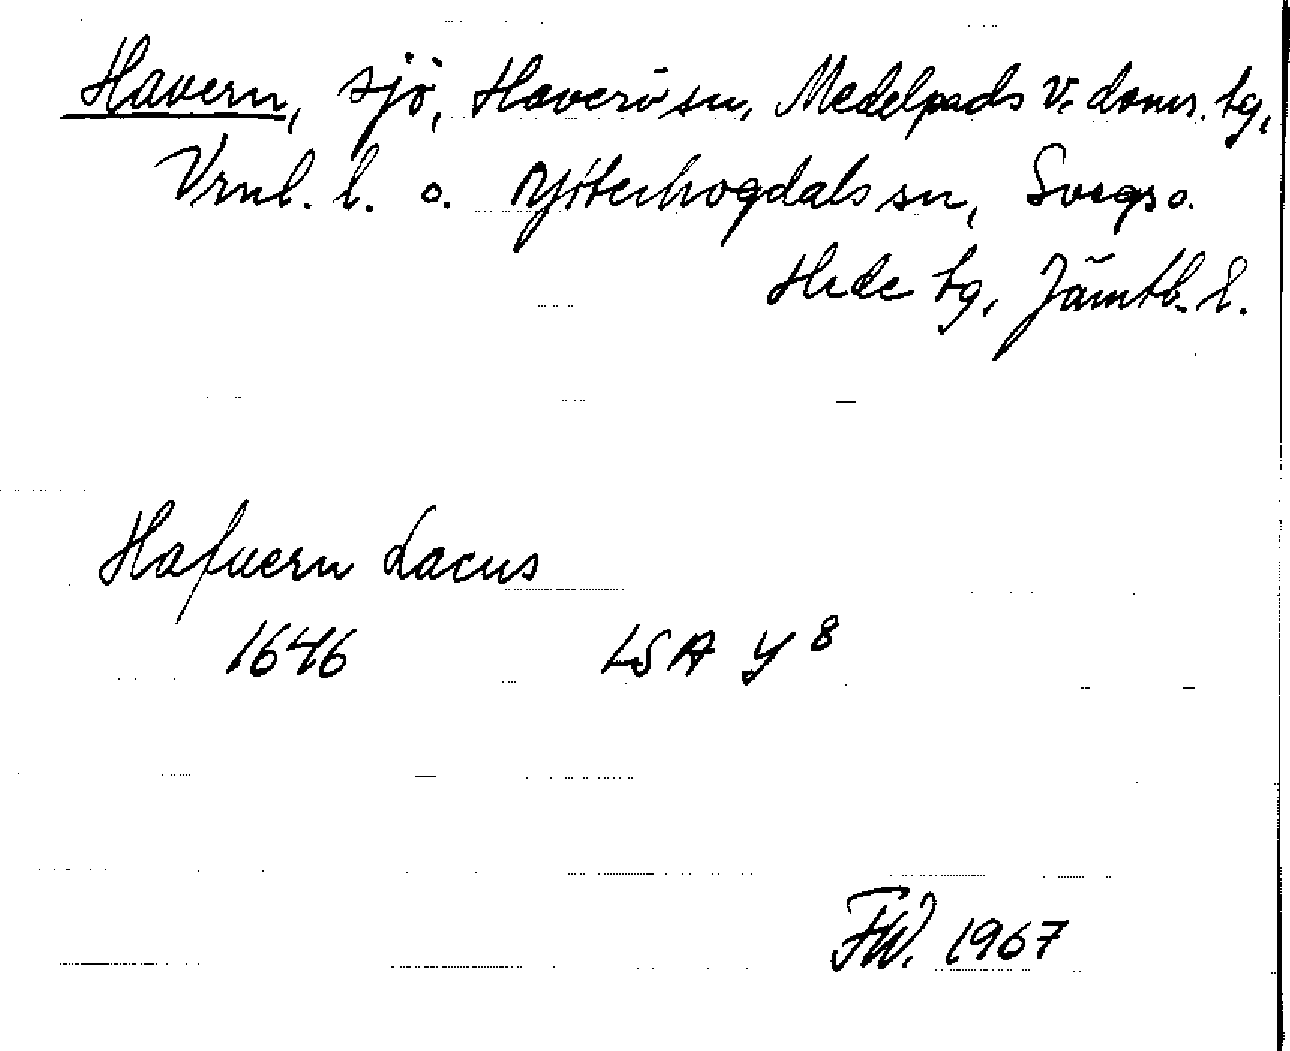 Havern, sjö, Haverö sn, Medelpads v. doms. tg,
Vrnl. l. o. Ytterhogdals sn, Svegs o.
Hede tg, Jämtl. l.
Hafvern Lacus
1646 LSA Y 8
FW. 1967